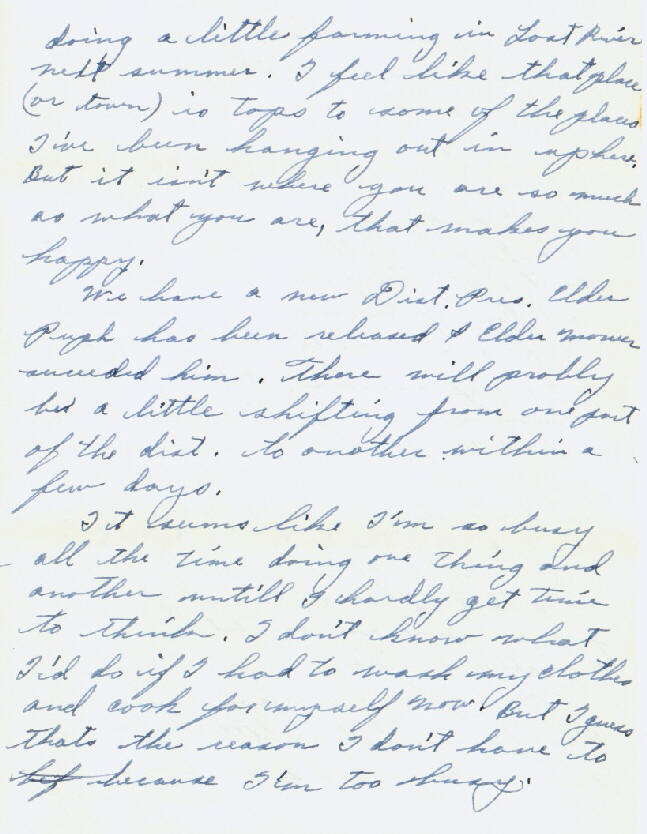 doing a little farming in Lost River
next summer. I feel like that place
(or town) is tops to some of the places
I've been hanging out in up here.
But it isn't where you are so much
as what you are, that makes you
happy.
We have a new Dist. Pres. Elder
Pugh has been released & Elder Mower
succeeded him. There will probly
be a little shifting from one part
of the dist. to another within a
few days.
It seems like I'm so busy
all the time doing one thing and
another untill I hardly get time
to think. I don't know what
I'd do if I had to wash my clothes
and cook for myself now. But I guess
thats the reason I don't have to
because I'm too busy.